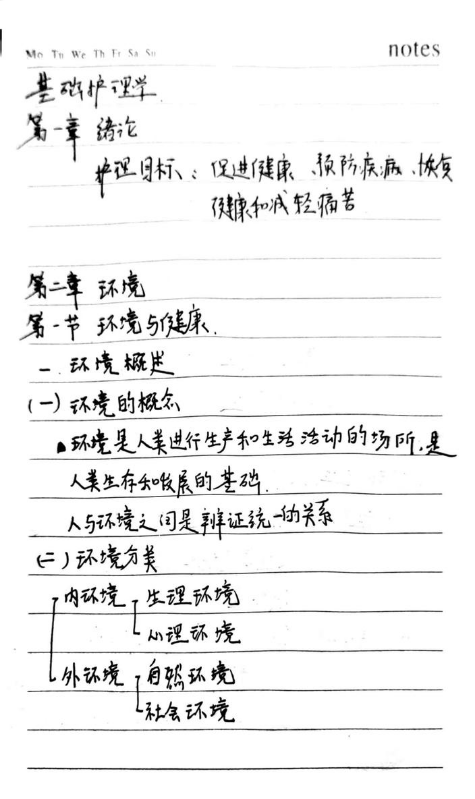 Mo Tu We Th Fr Sa Su
notes
基础护理学
第一章 绪论
护理目标：促进健康、预防疾病、恢复
健康和减轻痛苦
第二章 环境
第一节 环境与健康.
一. 环境概述
(一) 环境的概念
环境是人类进行生产和生活活动的场所,是
人类生存和发展的基础.
人与环境之间是辩证统一的关系
(二) 环境分类
内环境 生理环境
心理环境
外环境 自然环境
社会环境